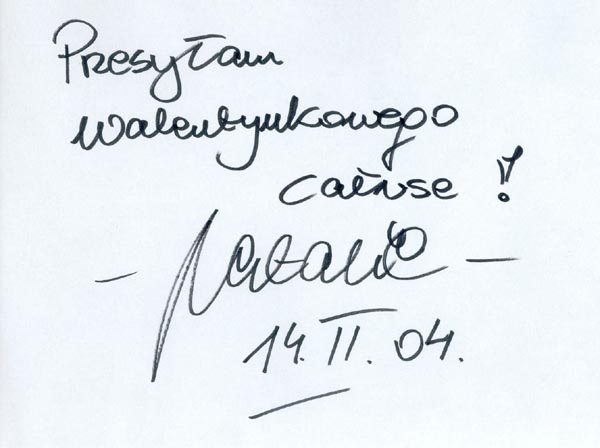 Presyłam
walentynkowego
całuse !
- Natalia -
14. II. 04.